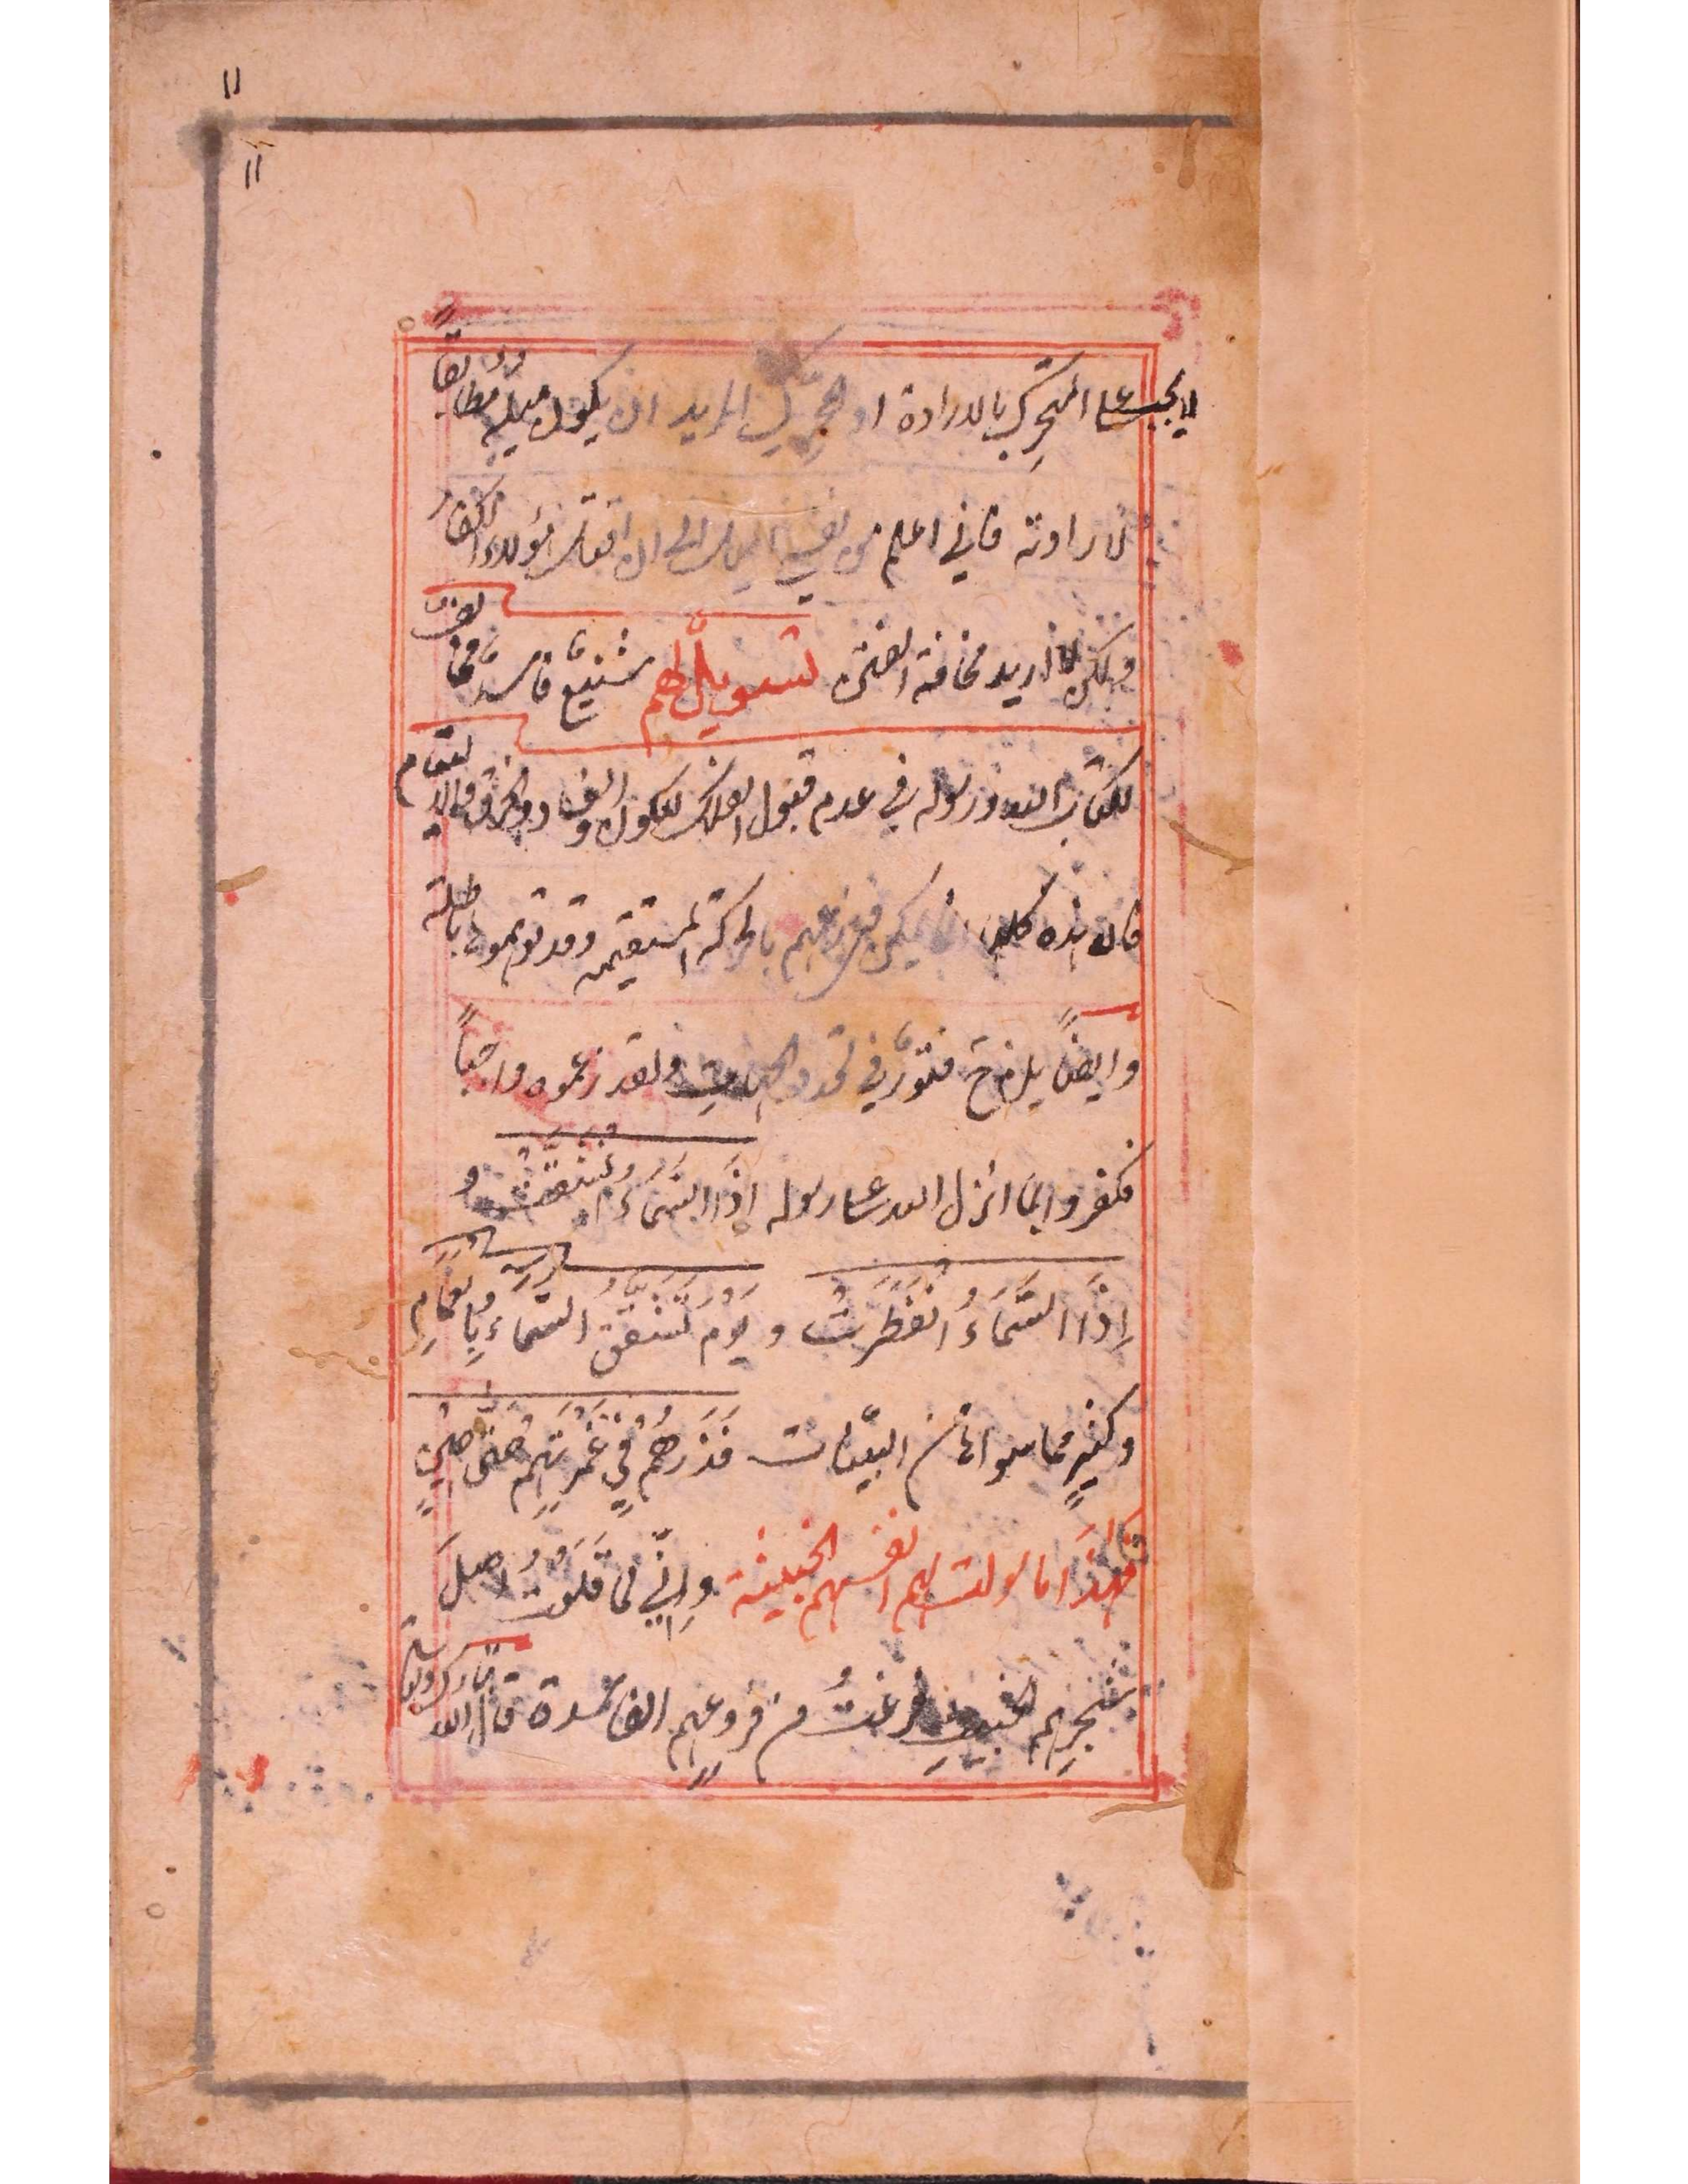 ۱۱
۱۱
لا يجب على المتحرِّك بالارادة او المحرّك المريد ان يكون ميله مطابقاً
لارادته فانّي اعلم من نفسي الى ان اقتل هؤلاء الكفار
ولكن لا اريد مخافة الفتن تسويلٌ لهم شنيعٌ فاسدٌ مخالف
لكتاب الله ورسوله في عدم قبول الفلك للكون والفساد والخرق والالتيام
فان هذه كلها انما يمكن في زعمهم بالحركة المستقيمة وقد توهموه باطلة
وايضاً يلزم ح فتورٌ في تحدد الجهات ولقد زعموه واجباً
فكفروا بما انزل الله على رسوله اِذَا السَّمَاءُ انْشَقَّتْ و
اِذَا السَّمَاءُ انْفَطَرَتْ و يَوْمَ تَشَقَّقُ السَّمَاءُ بِالْغَمَامِ
وكثيرٍ مما سواها من البيّنات فَذَرْهُمْ فِي غَمْرَتِهِمْ حَتَّى حِينٍ
فهٰذا ما سولت لهم انفسهم الخبيثة وانّي لما قلعت اصلَ
شجرهم الخبيث فرغتُ من فروعهم الفاسدة قال الله تبارك وتعالى